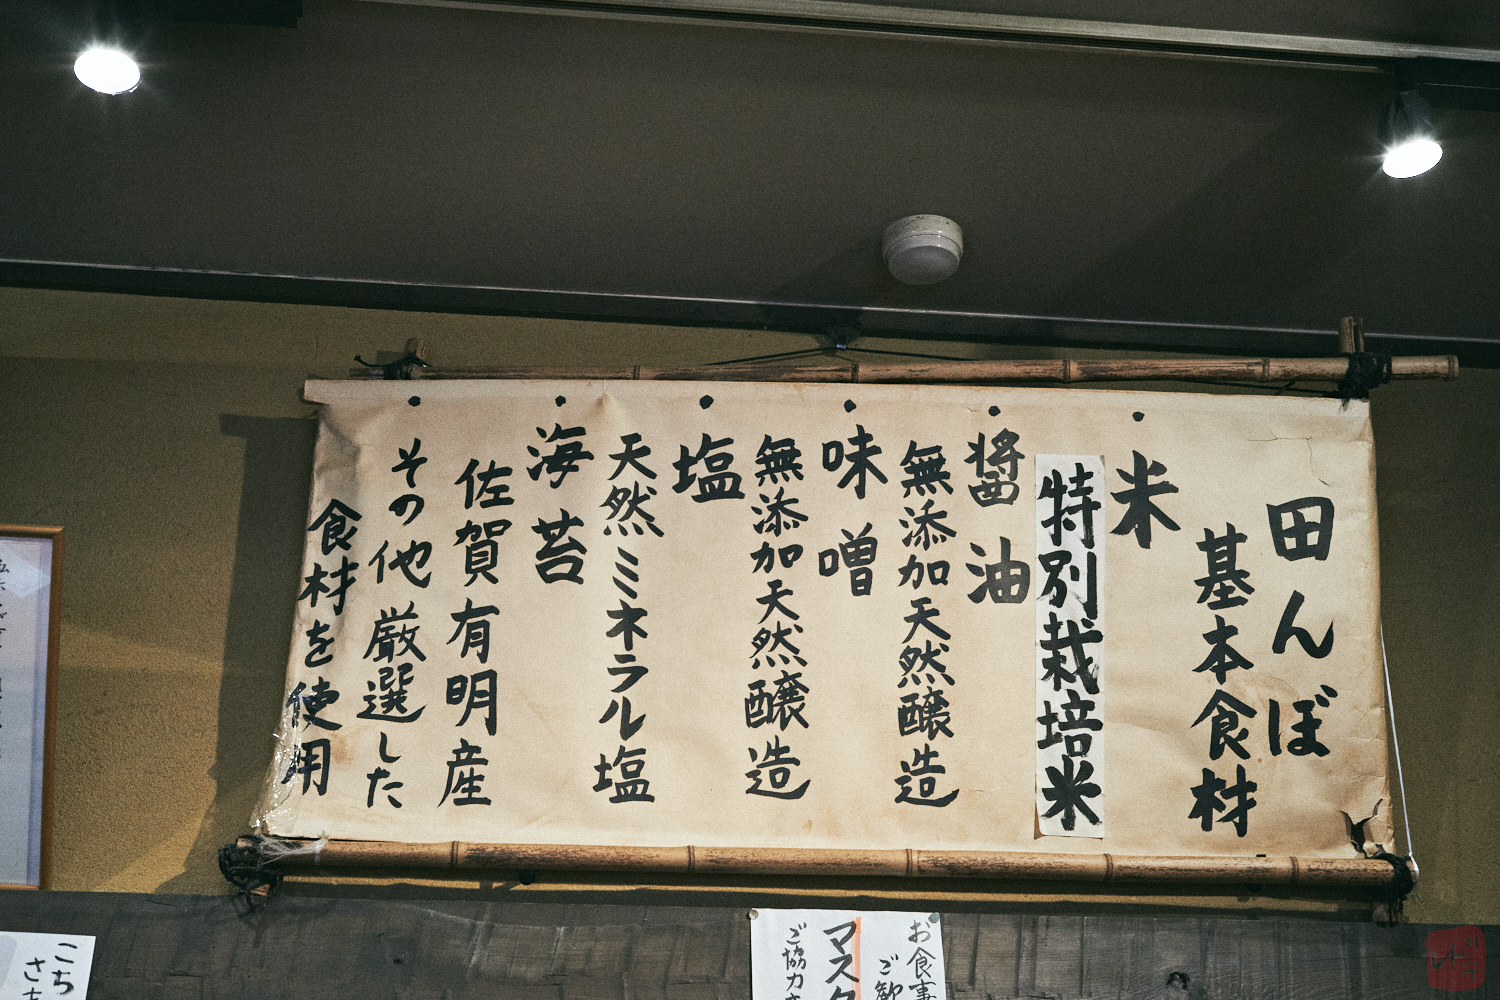 田んぼ
基本食材
米
特別栽培米
醤油
無添加天然醸造
味噌
無添加天然醸造
塩
天然ミネラル塩
海苔
佐賀有明産
その他厳選した
食材を使用
お食事
ご歓
マスク
ご協力
こち
さ